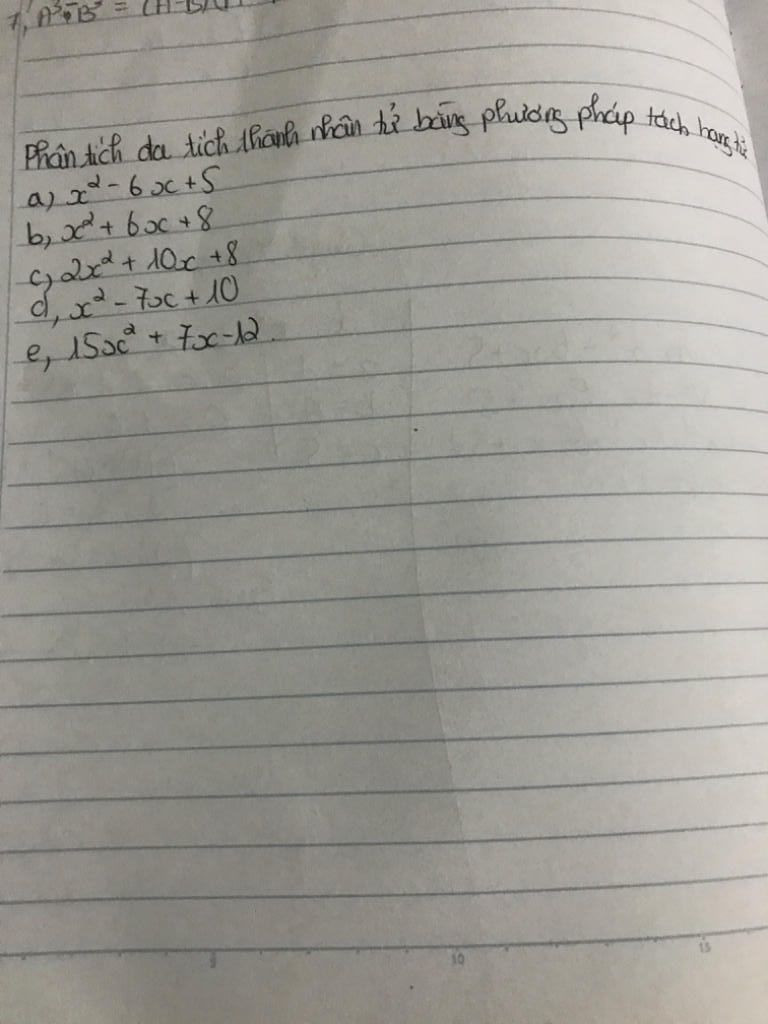 7, A³-B³ = (A-B)(
Phân tích đa tích thành nhân tử bằng phương pháp tách hạng tử
a) x² - 6x + 5
b, x² + 6x + 8
c, 2x² + 10x + 8
d, x² - 7x + 10
e, 15x² + 7x - 12.
5 10 15